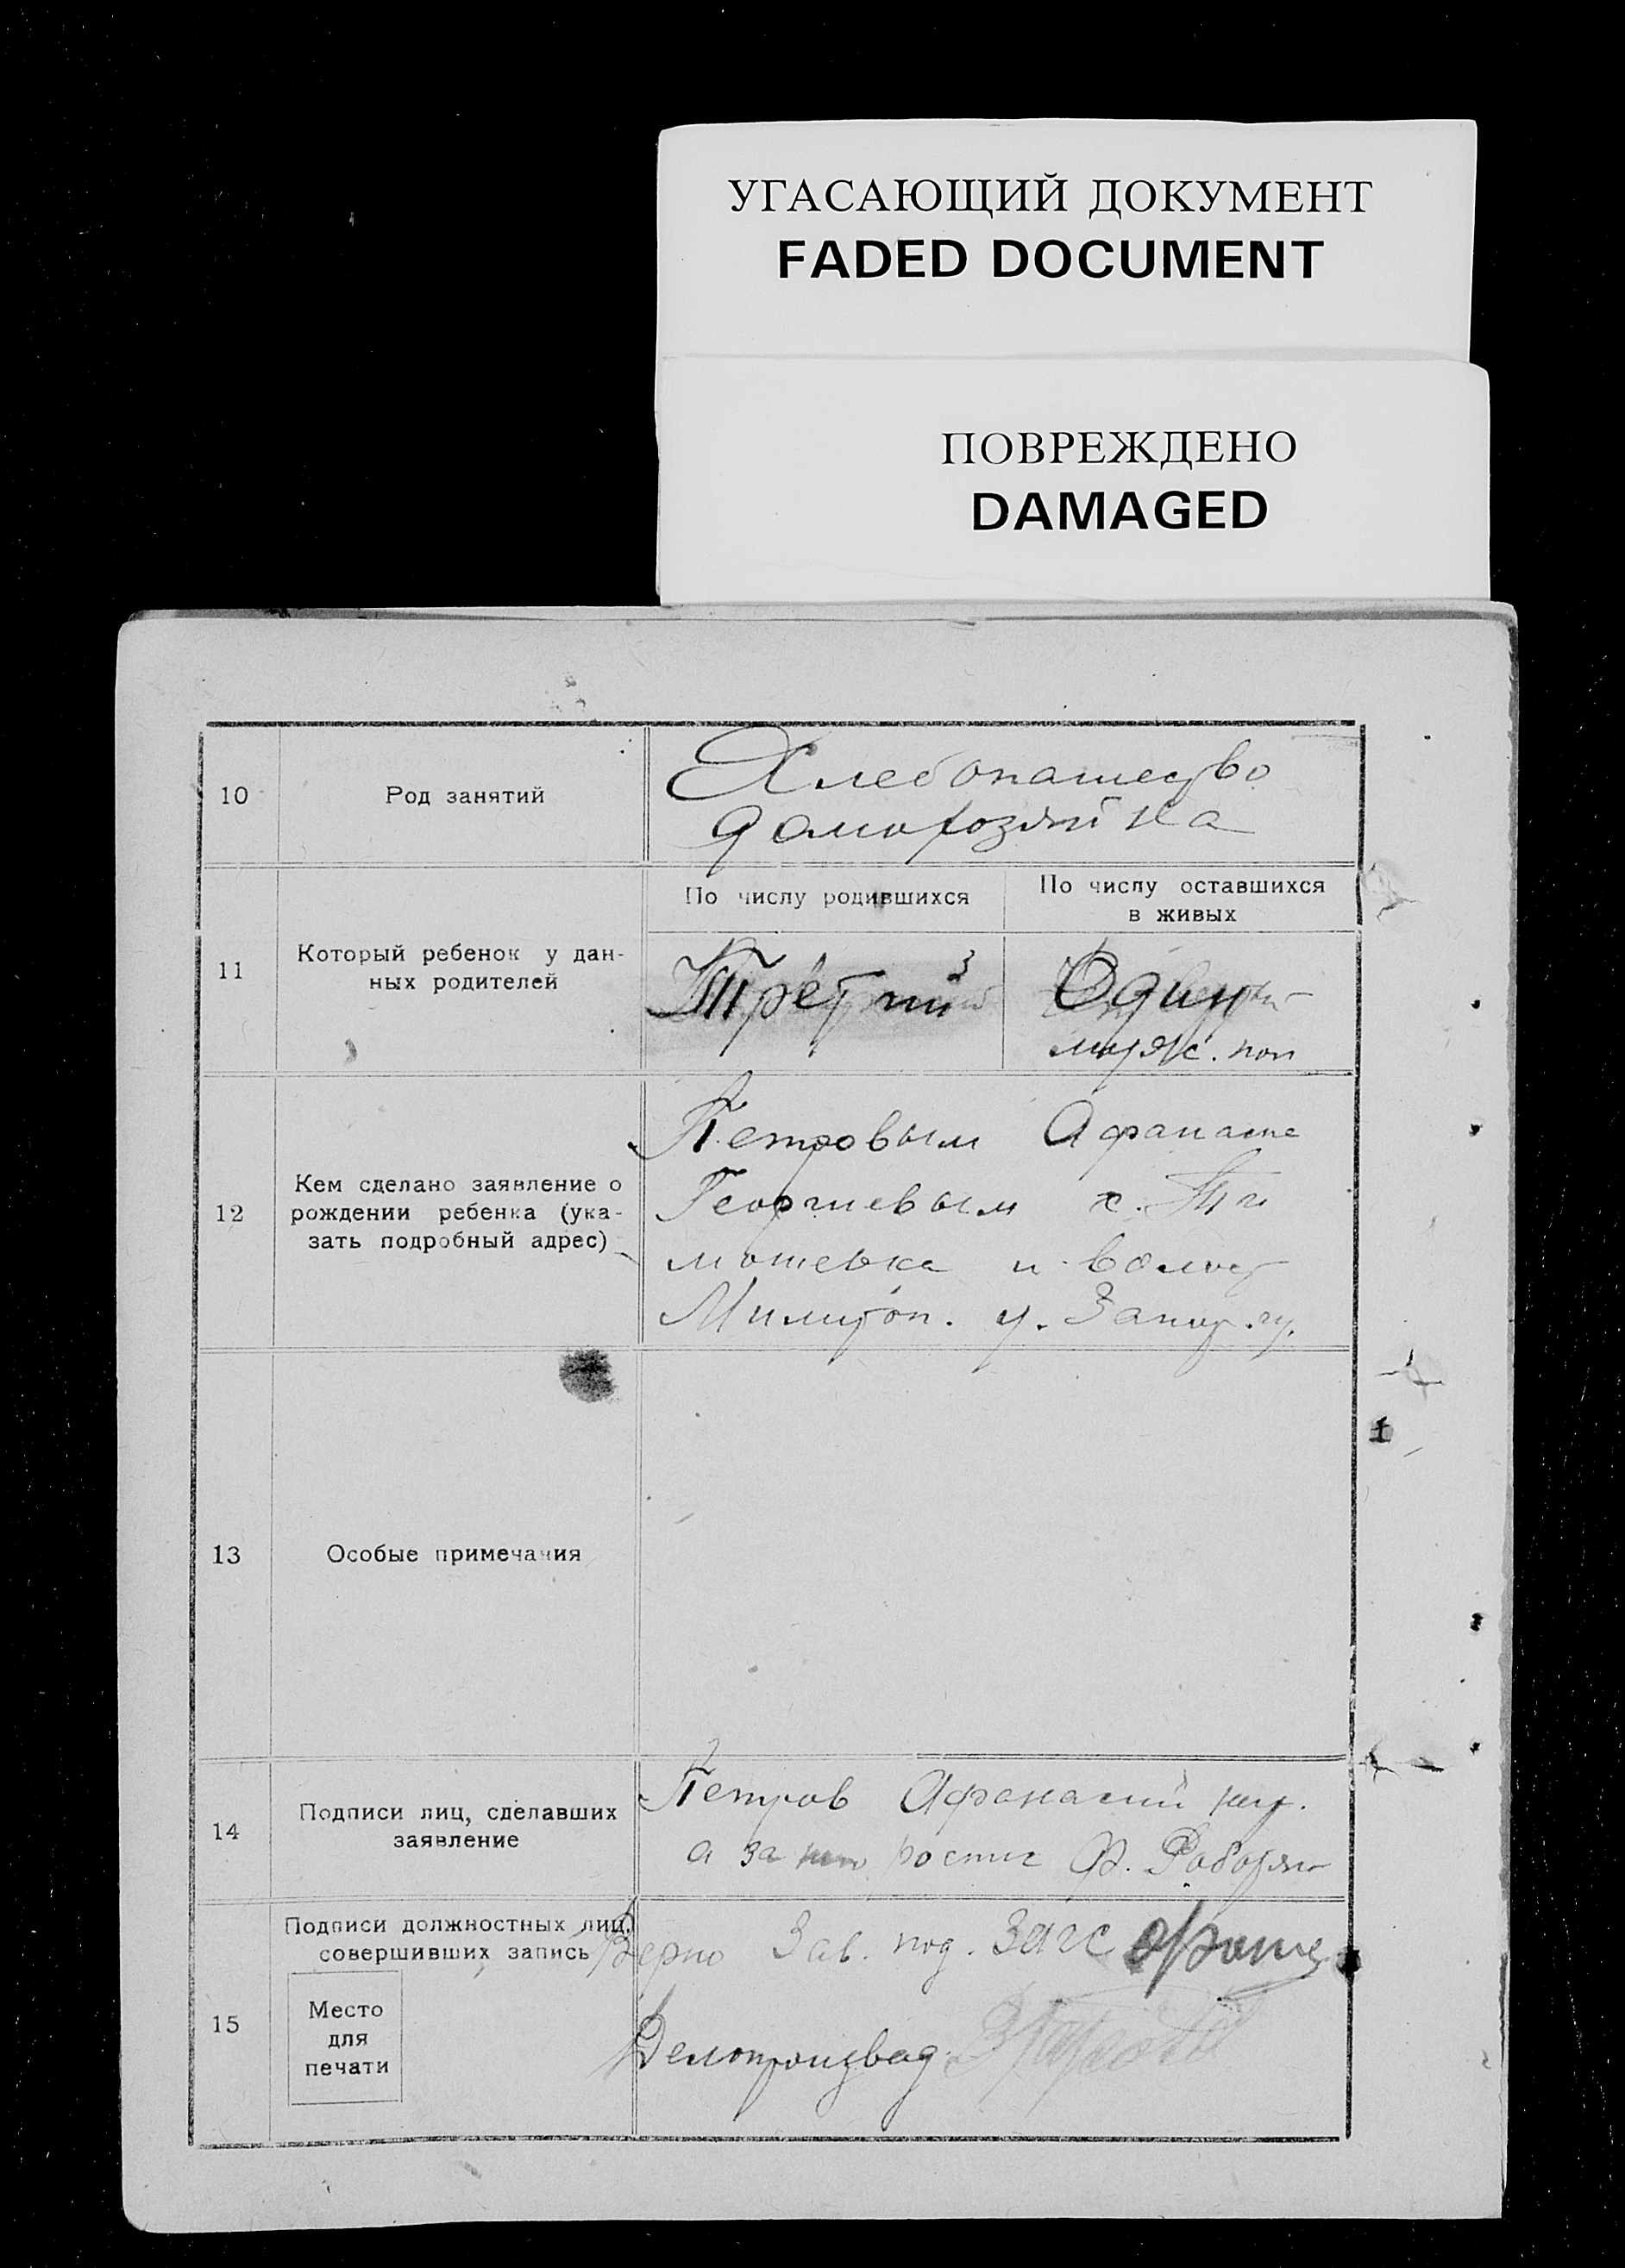 УГАСАЮЩИЙ ДОКУМЕНТ
FADED DOCUMENT
ПОВРЕЖДЕНО
DAMAGED
10
Род занятий
Хлебопашество
домохозяйка
11
Который ребенок у дан-
ных родителей
По числу родившихся
По числу оставшихся
в живых
Третий
3
Один
мужс. пол
12
Кем сделано заявление о
рождении ребенка (ука-
зать подробный адрес)
Петровым Афанасие
Георгиевым х. Ти
мошевка и волост
Милитоп. у. Запор. гу.
13
Особые примечания
14
Подписи лиц, сделавших
заявление
Петров Афанасий
а за ростис Ф.
15
Подписи должностных лиц,
совершивших запись
Место
для
печати
Верно Зав. под. Загс
Делопроизвод.